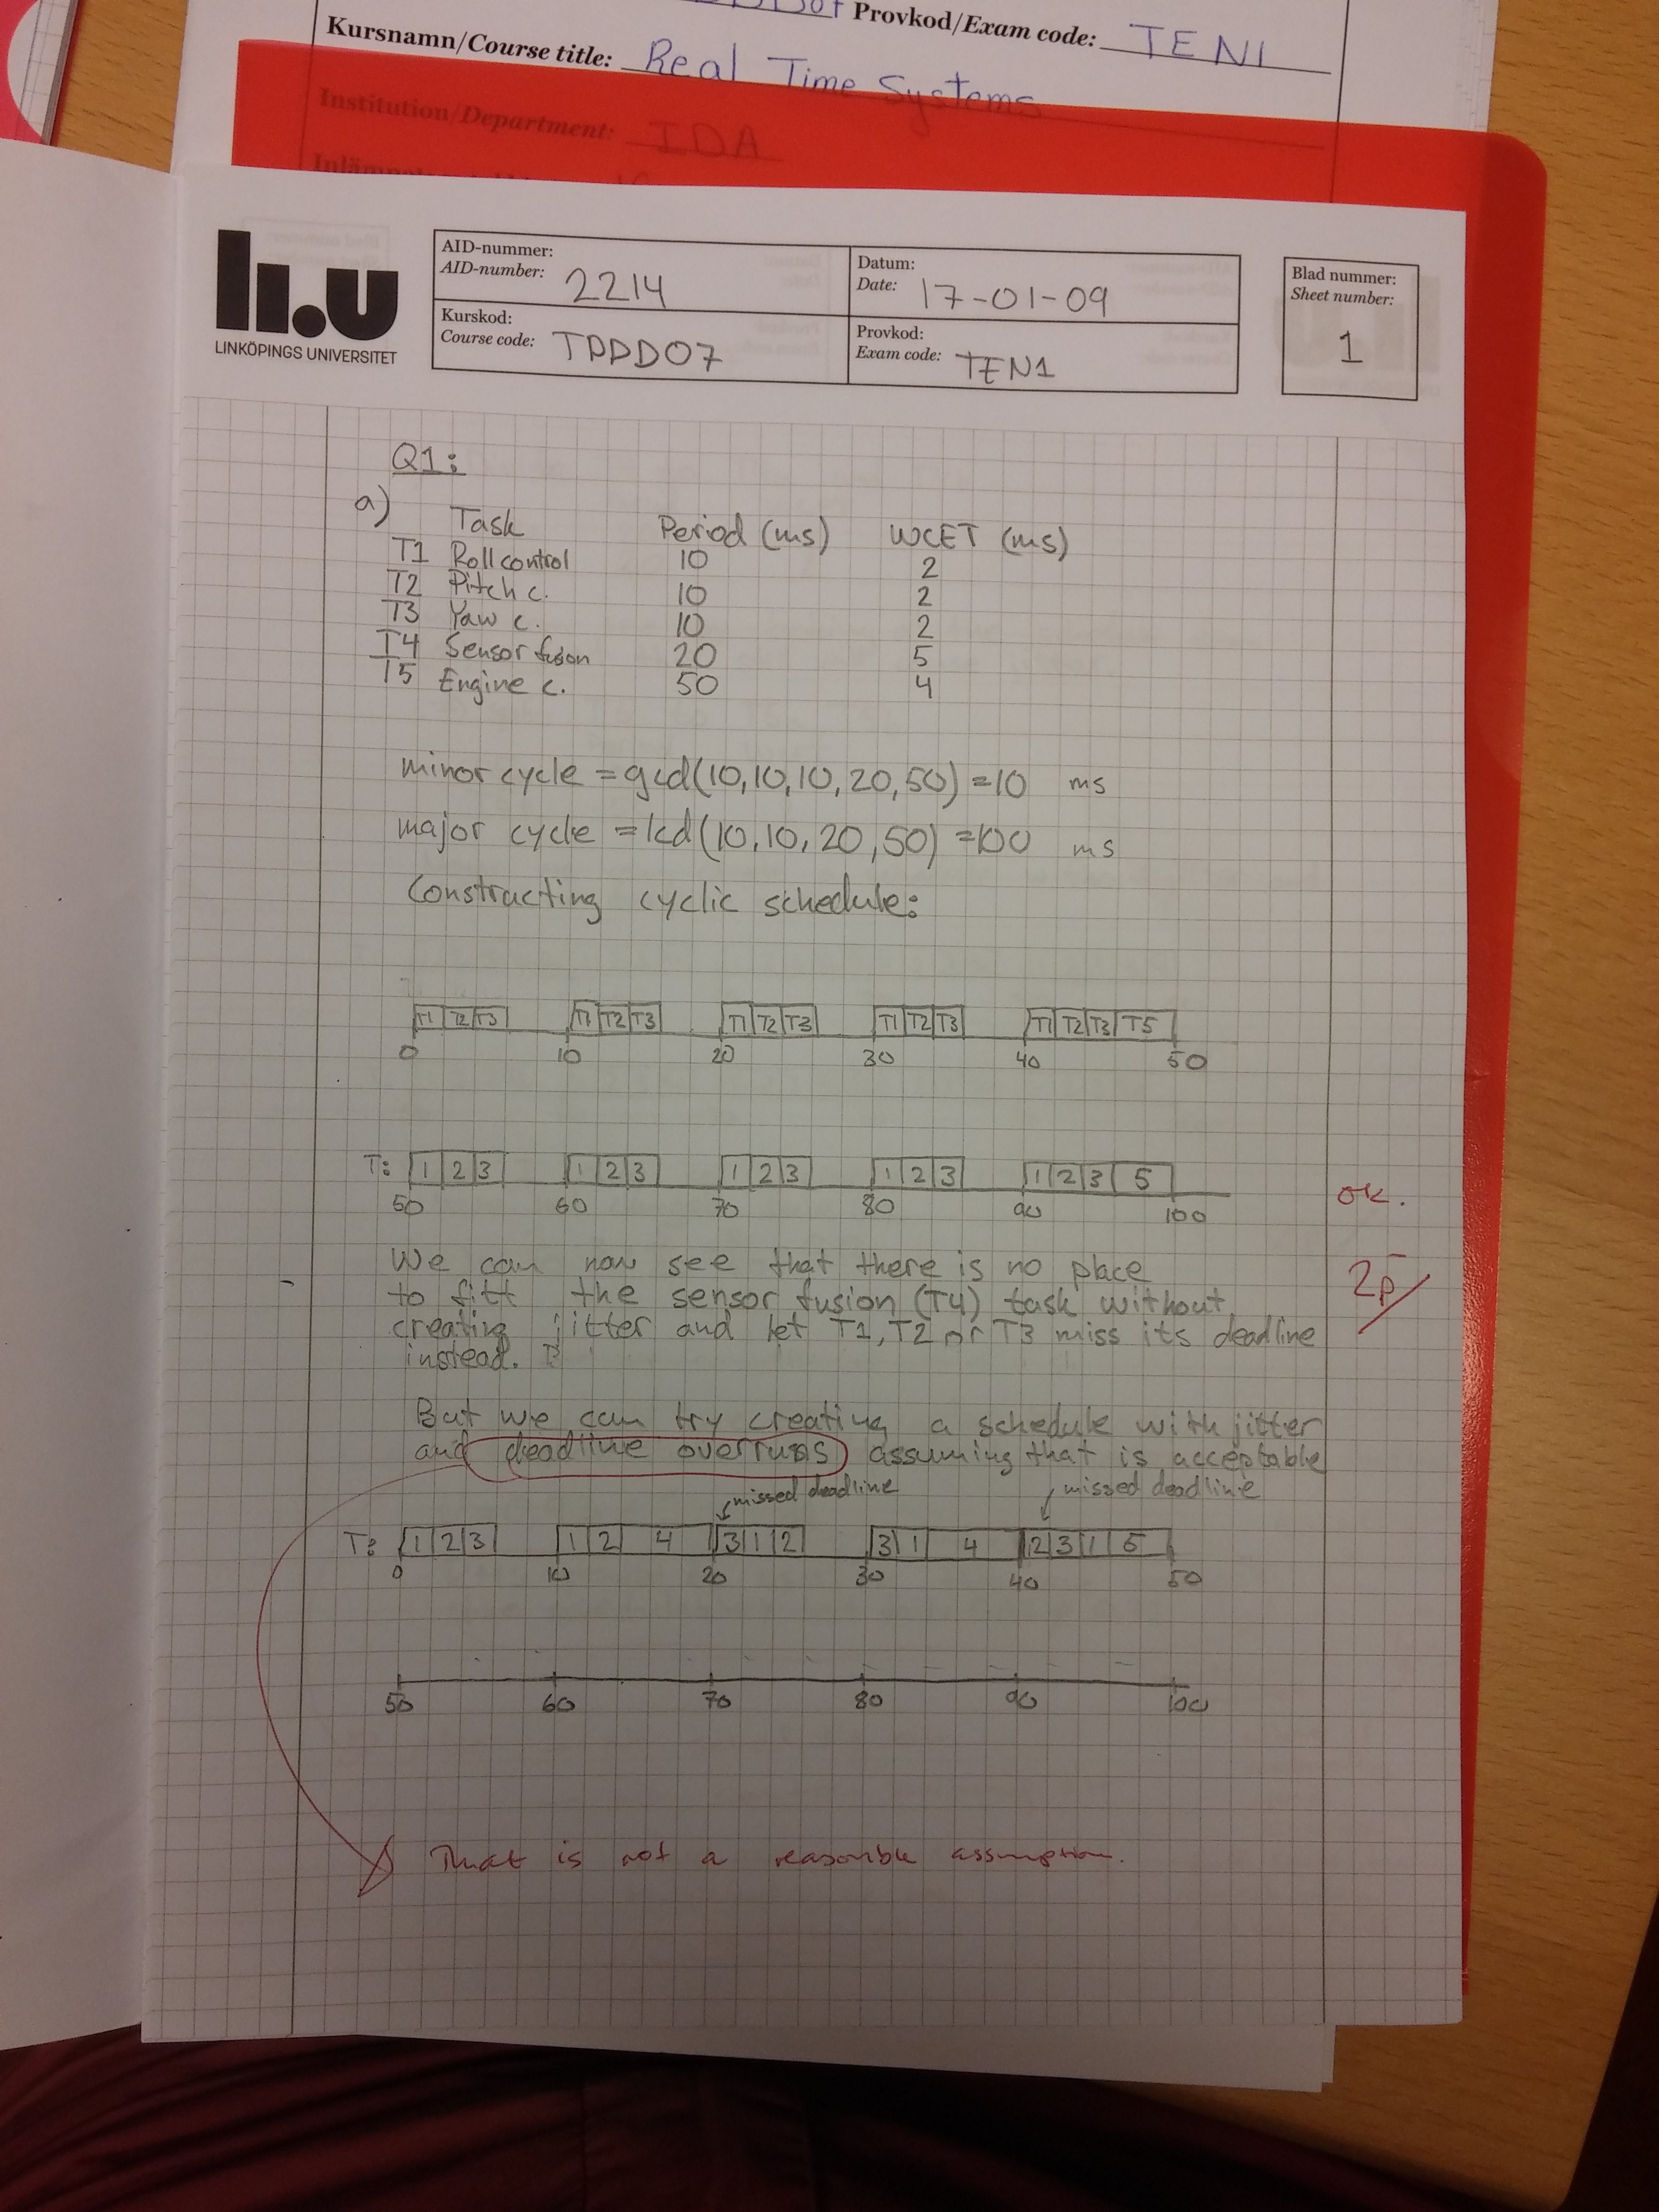 Provkod/Exam code: TEN1
Kursnamn/Course title: Real Time Systems
Institution/Department: IDA
li.u
LINKÖPINGS UNIVERSITET
AID-nummer:
AID-number: 2214
Datum:
Date: 17-01-09
Kurskod:
Course code: TDDD07
Provkod:
Exam code: TEN1
Blad nummer:
Sheet number:
1
Q1:
a)
Task Period (ms) WCET (ms)
T1 Roll control 10 2
T2 Pitch c. 10 2
T3 Yaw c. 10 2
T4 Sensor fusion 20 5
T5 Engine c. 50 4
minor cycle = gcd(10,10,10,20,50) = 10 ms
major cycle = lcd(10,10,20,50) = 100 ms
Constructing cyclic schedule:
T1 T2 T3 T1 T2 T3 T1 T2 T3 T1 T2 T3 T1 T2 T3 T5
0 10 20 30 40 50
T: 1 2 3 1 2 3 1 2 3 1 2 3 1 2 3 5
50 60 70 80 90 100
ok.
We can now see that there is no place
2p
to fitt the sensor fusion (T4) task without
creating jitter and let T1, T2 or T3 miss its deadline
instead.
But we can try creating a schedule with jitter
and deadline overruns assuming that is acceptable
missed deadline missed deadline
T: 1 2 3 1 2 4 3 1 2 3 1 4 2 3 1 5
0 10 20 30 40 50
50 60 70 80 90 100
That is not a reasonable assumption.